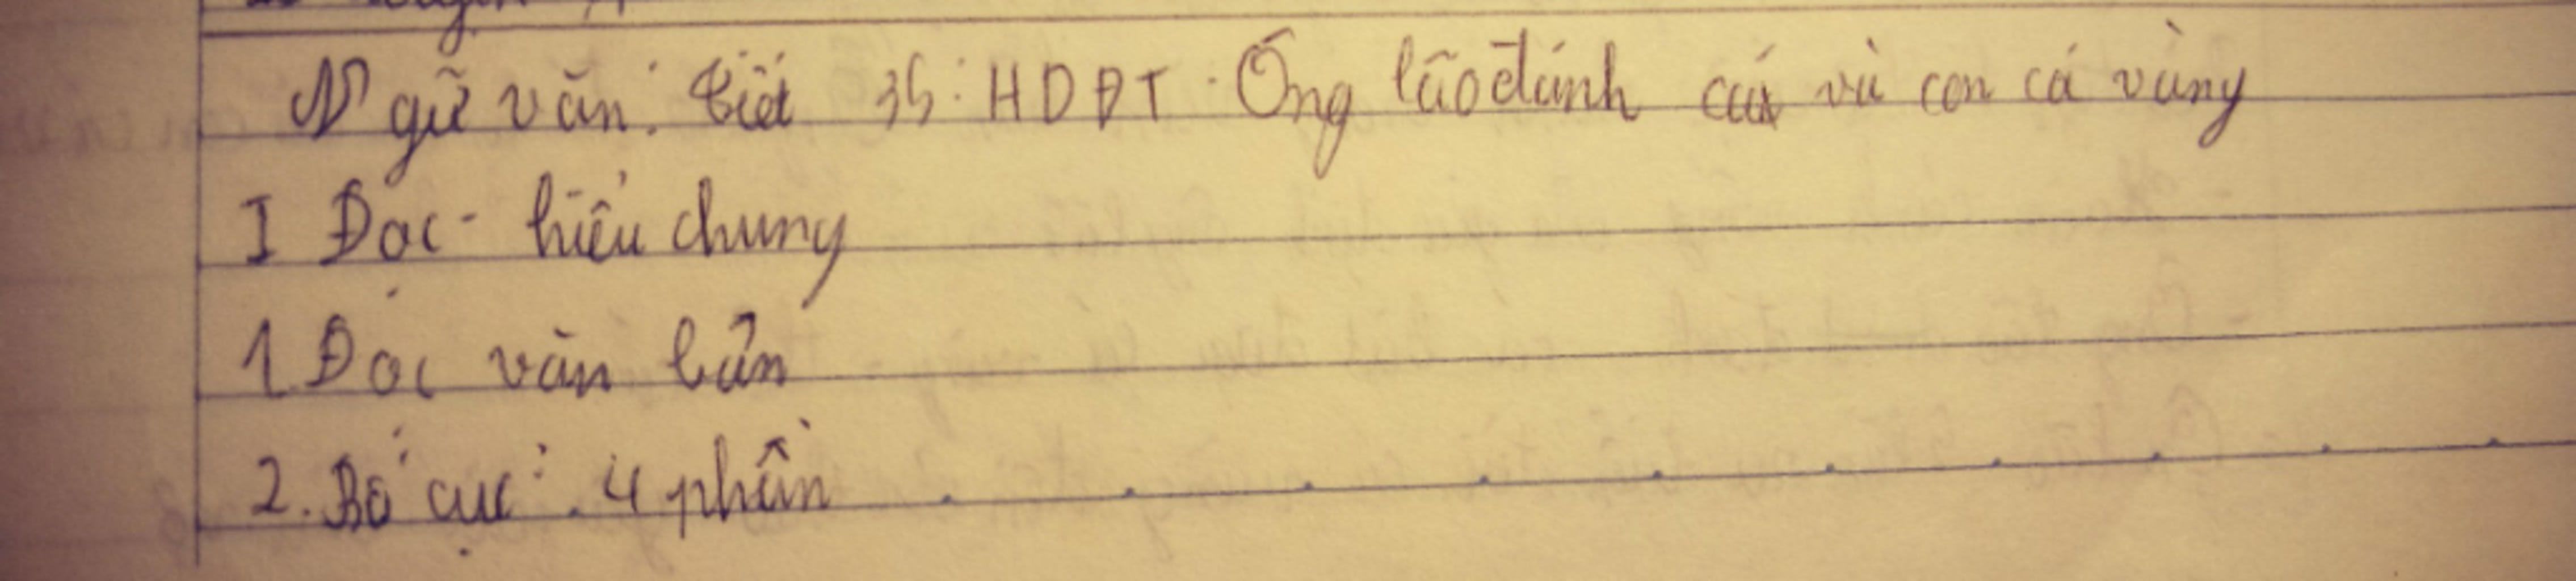 Ngữ văn: tiết 35: HDĐT. Ông lão đánh cá và con cá vàng
I Đọc - hiểu chung
1 Đọc văn bản
2. Bố cục: 4 phần